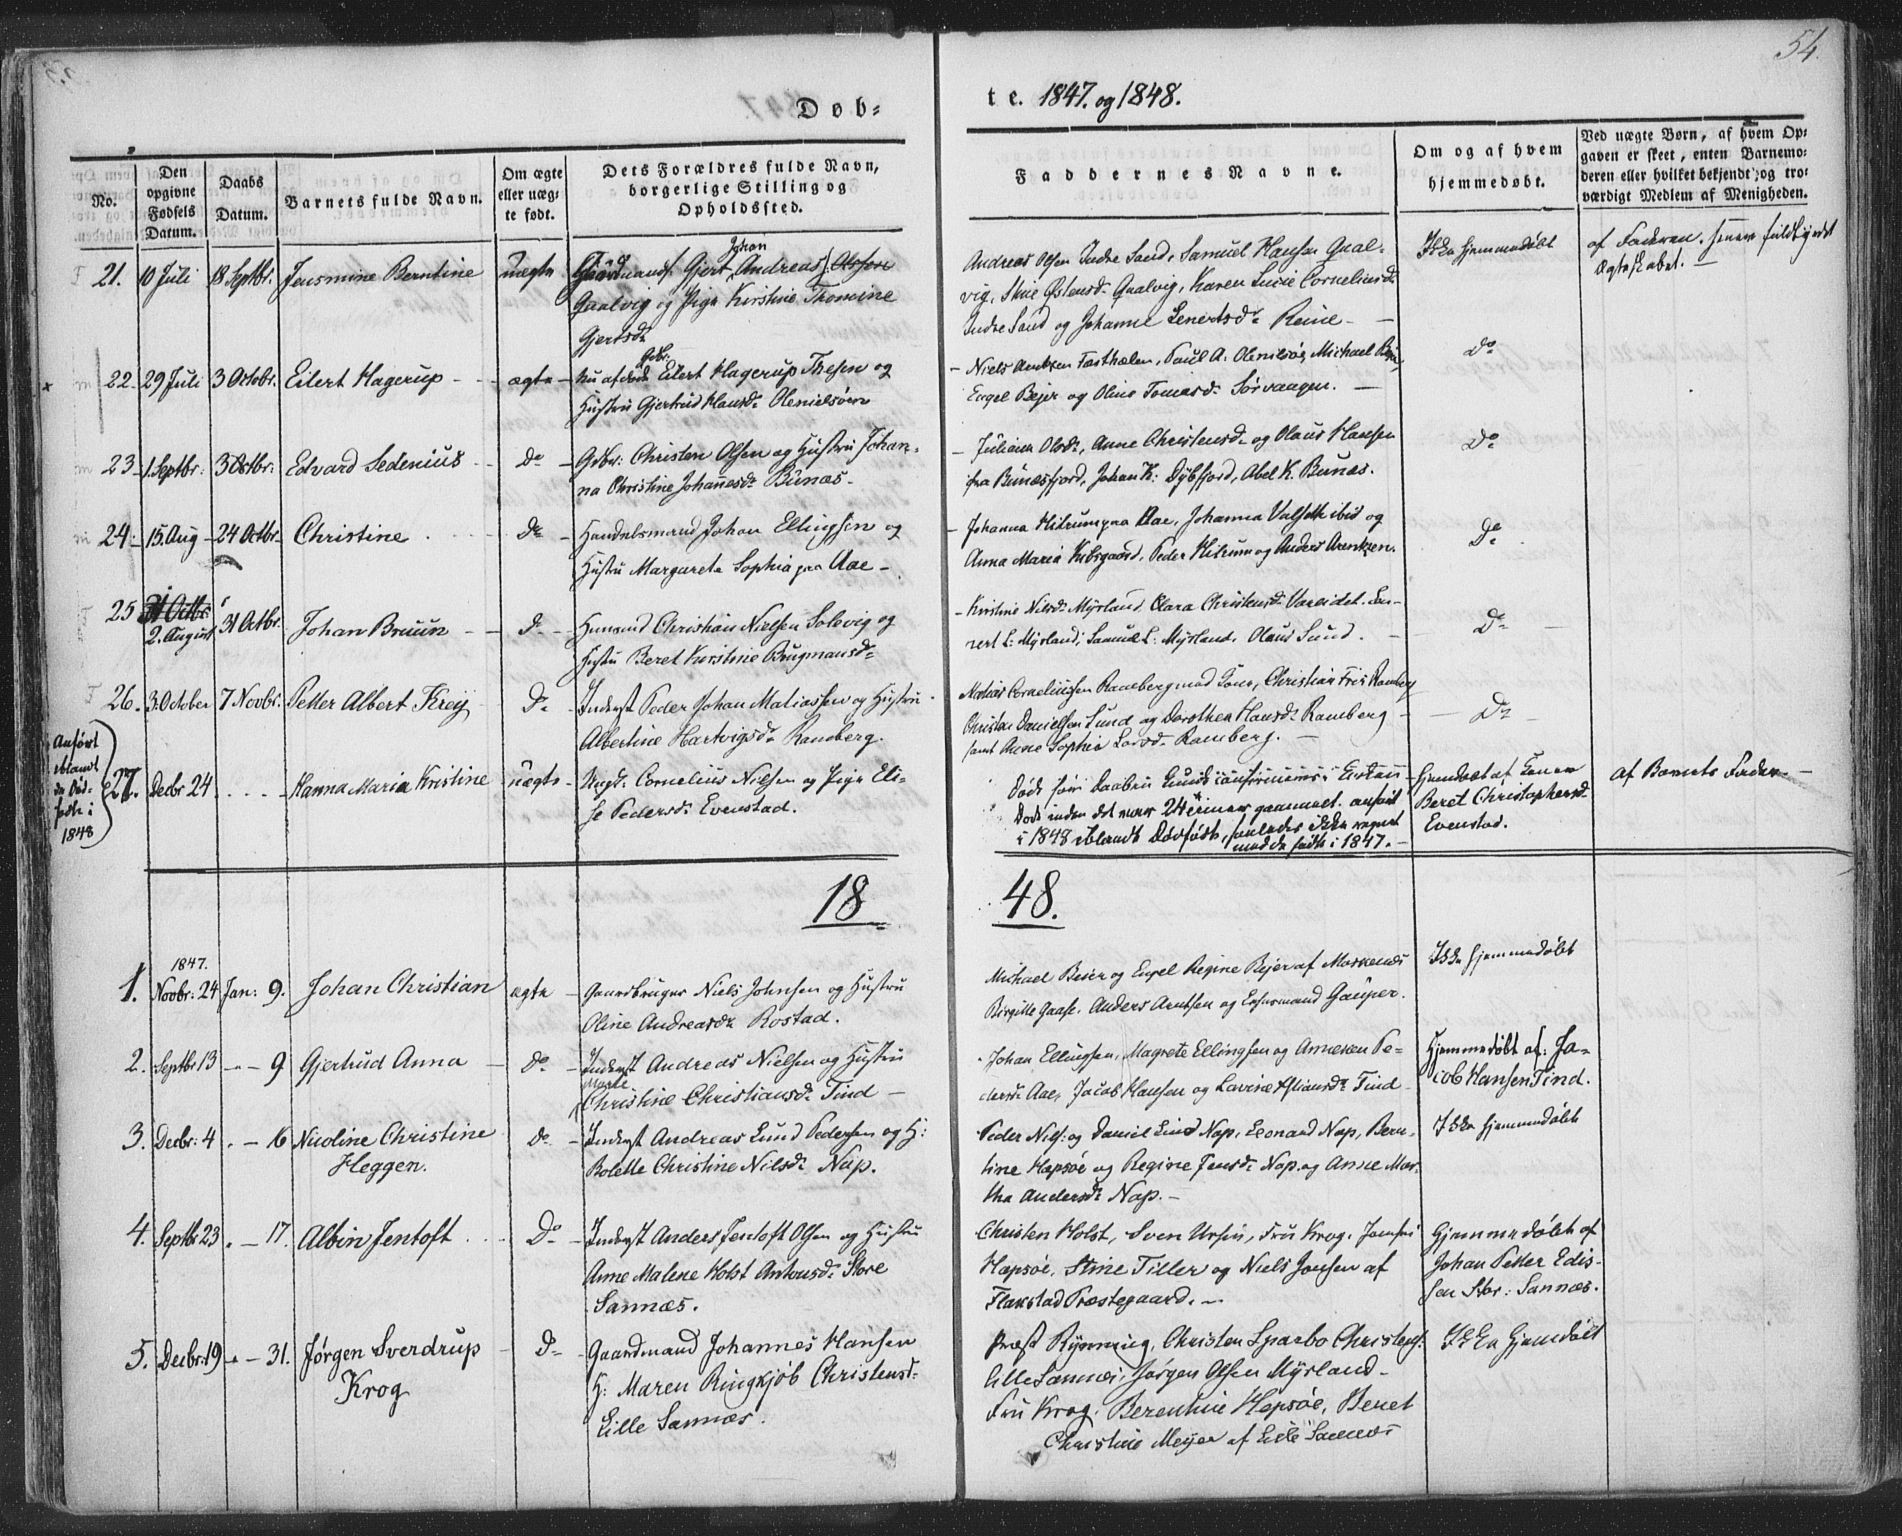 54.
Døb-
te. 1847. og 1848.
No.
Den opgivne Fødsels Datum.
Daabs Datum.
Barnets fulde Navn.
Om ægte eller uægte født.
Dets Forældres fulde Navn, borgerlige Stilling og Opholdssted.
Faddernes Navne.
Om og af hvem hjemmedøbt.
Ved uægte Børn, af hvem Opgaven er skeet, enten Barnemoderen eller hvilket bekjendt og troværdigt Medlem af Menigheden.
21. 10 Juli 18 Septbr. Jensmine Berntine uægte Gaardmand Gjert Johan Andreas
Qualvig og Pige Kirstine Thomine
Gjertsd.
Andreas Olsen Indre Sand, Samuel Hansen Qual-
vig, Stine Østensd. Qualvig, Karen Lucie Corneliusd.
Indre Sand og Johanne Lenertsd. Reine -
Ikke hjemmedøbt
af Faderen. senere fuldbyrdet
Ægteskabet.
22. 29 Juli 3 Octobr. Eilert Hagerup - ægte - nu afdøde Gdbr. Eilert Hagerup Thesen og
Hustru Gjertrud Hansd. Olenielsøen
- Niels Arntsen Fasthælen, Paul A: Olenilsøe, Michael Bejer,
Engel Bejer og Oline Tomasd. Sørvaagen. -
Do
23 - 1. Septbr: 3 Octbr: Edvard Sedenius - Do - Gdbr: Christen Olsen og Hustru Johan-
na Christine Johannesd. Bunæs -
- Juliana Olsd., Anne Christensd. og Olaus Hansen
fra Bunæsfjord, Johan K: Dybfjord, Abel K. Bunæs.
Do
24 - 15. Aug - 24 Octbr. Christine Do - Handelsmand Johan Ellingsen og
Hustru Margareta Sophia paa Aae -
- Johanna Hitrum paa Aae, Johanna Valseth ibid og
Anna Maria Kibsgaard, Peder Hitrum og Anders Arentzen.
Do
25 2. August 31 Octbr. Johan Bruun - Do - Huusmd Christian Nielsen Solevig og
Hustru Beret Kirstine Brugmansd.
- Kirstine Nilsd. Myrland, Clara Christensd. Vareidet, Len-
nert L: Myrland, Samuel L: Myrland, Olaus Sund. -
Do
26. 3. October 7 Novbr. Petter Albert Krey Do - Inderst Peder Johan Matiassen og Hustru
Albertine Hartvigsd. Ramberg.
Matias Corneliussen Ramberg med Kone, Christian Friis Ramberg
Christen Danielsen Sund og Dorothea Hansd. Ramberg -
samt Anne Sophia Larsd. Ramberg. -
Do
Anført
iblandt
de Død-
fødte i
1848
27. Decbr 24 Hanna Maria Kristine uægte Ungk. Cornelius Nielsen og Pige Eli-
se Pedersd. Evenstad.
Død før Daaben kunde confirmeres i Kirken
Døde inden det var 24 timer gammelt. anført
i 1848 iblandt Dødfødte, saaledes ikke regnet
med de fødte i 1847. -
Hjemdøbt af Konen
Beret Christophersd.
Evenstad.
af Barnets Fader. -
18 48.
1847.
1. Novbr: 24 Jan: 9. Johan Christian ægte - Gaardbruger Niels Johnsen og Hustru
Oline Andreasd. Rostad.
Michael Beier og Engel Regine Bejer af Moskenæs
Birgitte Gaase, Anders Arntsen og Gaüper.
Ikke hjemmedøbt
2. Septbr 13 - " - 9 Gjertrud Anna - Do - Inderst Andreas Nielsen og Hustru
Marte
Christine Christiansd. Tind -
Johan Ellingsen, Magrete Ellingsen og Anneken Pe-
dersd. Aae, Jacob Hansen og Lavine Tind -
Hjemmedøbt af: Ja-
cob Hansen Tind.
3. Decbr: 4 " - 16 Nicoline Christine
Heggen.
Do - Inderst Andreas Lund Pedersen og H:
Bolette Christine Nilsd. Nap.
Peder Niels: og Daniel Lind Nap, Leonard Nap, Bern-
tine Hæpsøe og Regine Jensd. Nap og Anne Mar-
tha Andersd. Nap. -
Ikke hjemmedøbt
4. Septbr 23 " - 17. Albin Jentoft Do - Inderst Anders Jentoft Olsen og Hustru
Anne Malene Holst Antonsd. Store
Sannæs.
Christen Holst, Sven Ursin, Fru Krog, Jomfru
Hæpsøe, Stine Tiller og Niels Jonsen af
Flakstad Præstegaard. -
Hjemmedøbt af
Johan Petter Edis-
sen Stor: Sannæs.
5. Decbr: 19 " - 31. Jørgen Sverdrup
Krog
Do - Gaardmand Johannes Hansen
H: Maren Ringkjøb Christensd.
Lille Sannæs.
Præst Rynning, Christen Sparbo Christens:
Lille Sannæs, Jørgen Olsen Myrland -
Fru Krog, Berentine Hepsøe, Beret
Christine Meyer af Lille Sannæs
Ikke Hjemdøbt